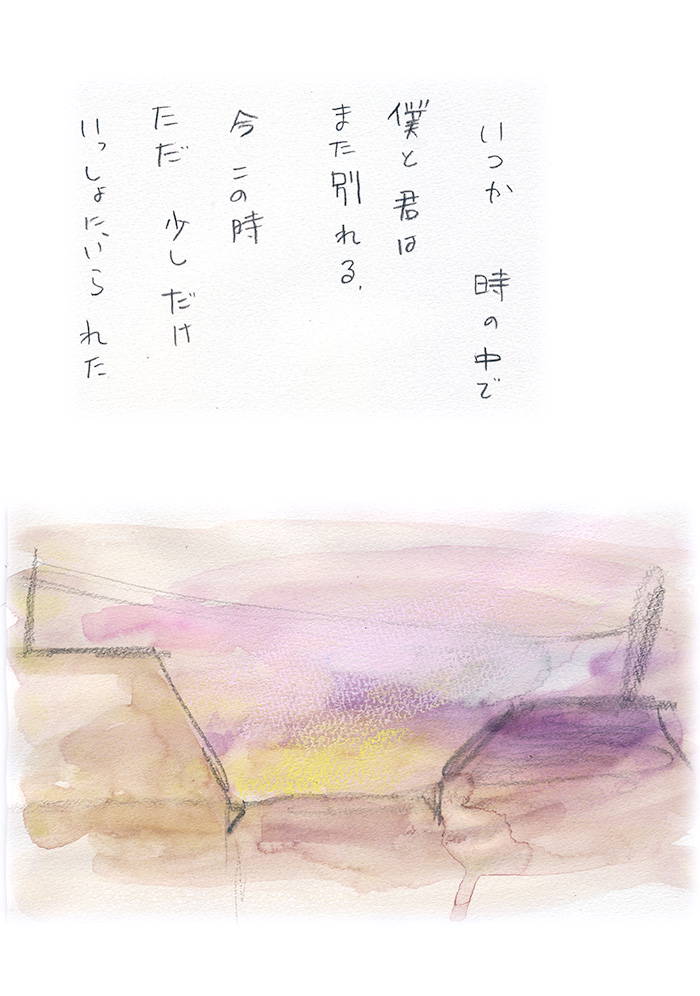 いつか 時の中で
僕と君は
また別れる、
今 この時
ただ 少しだけ
いっしょに、いられた